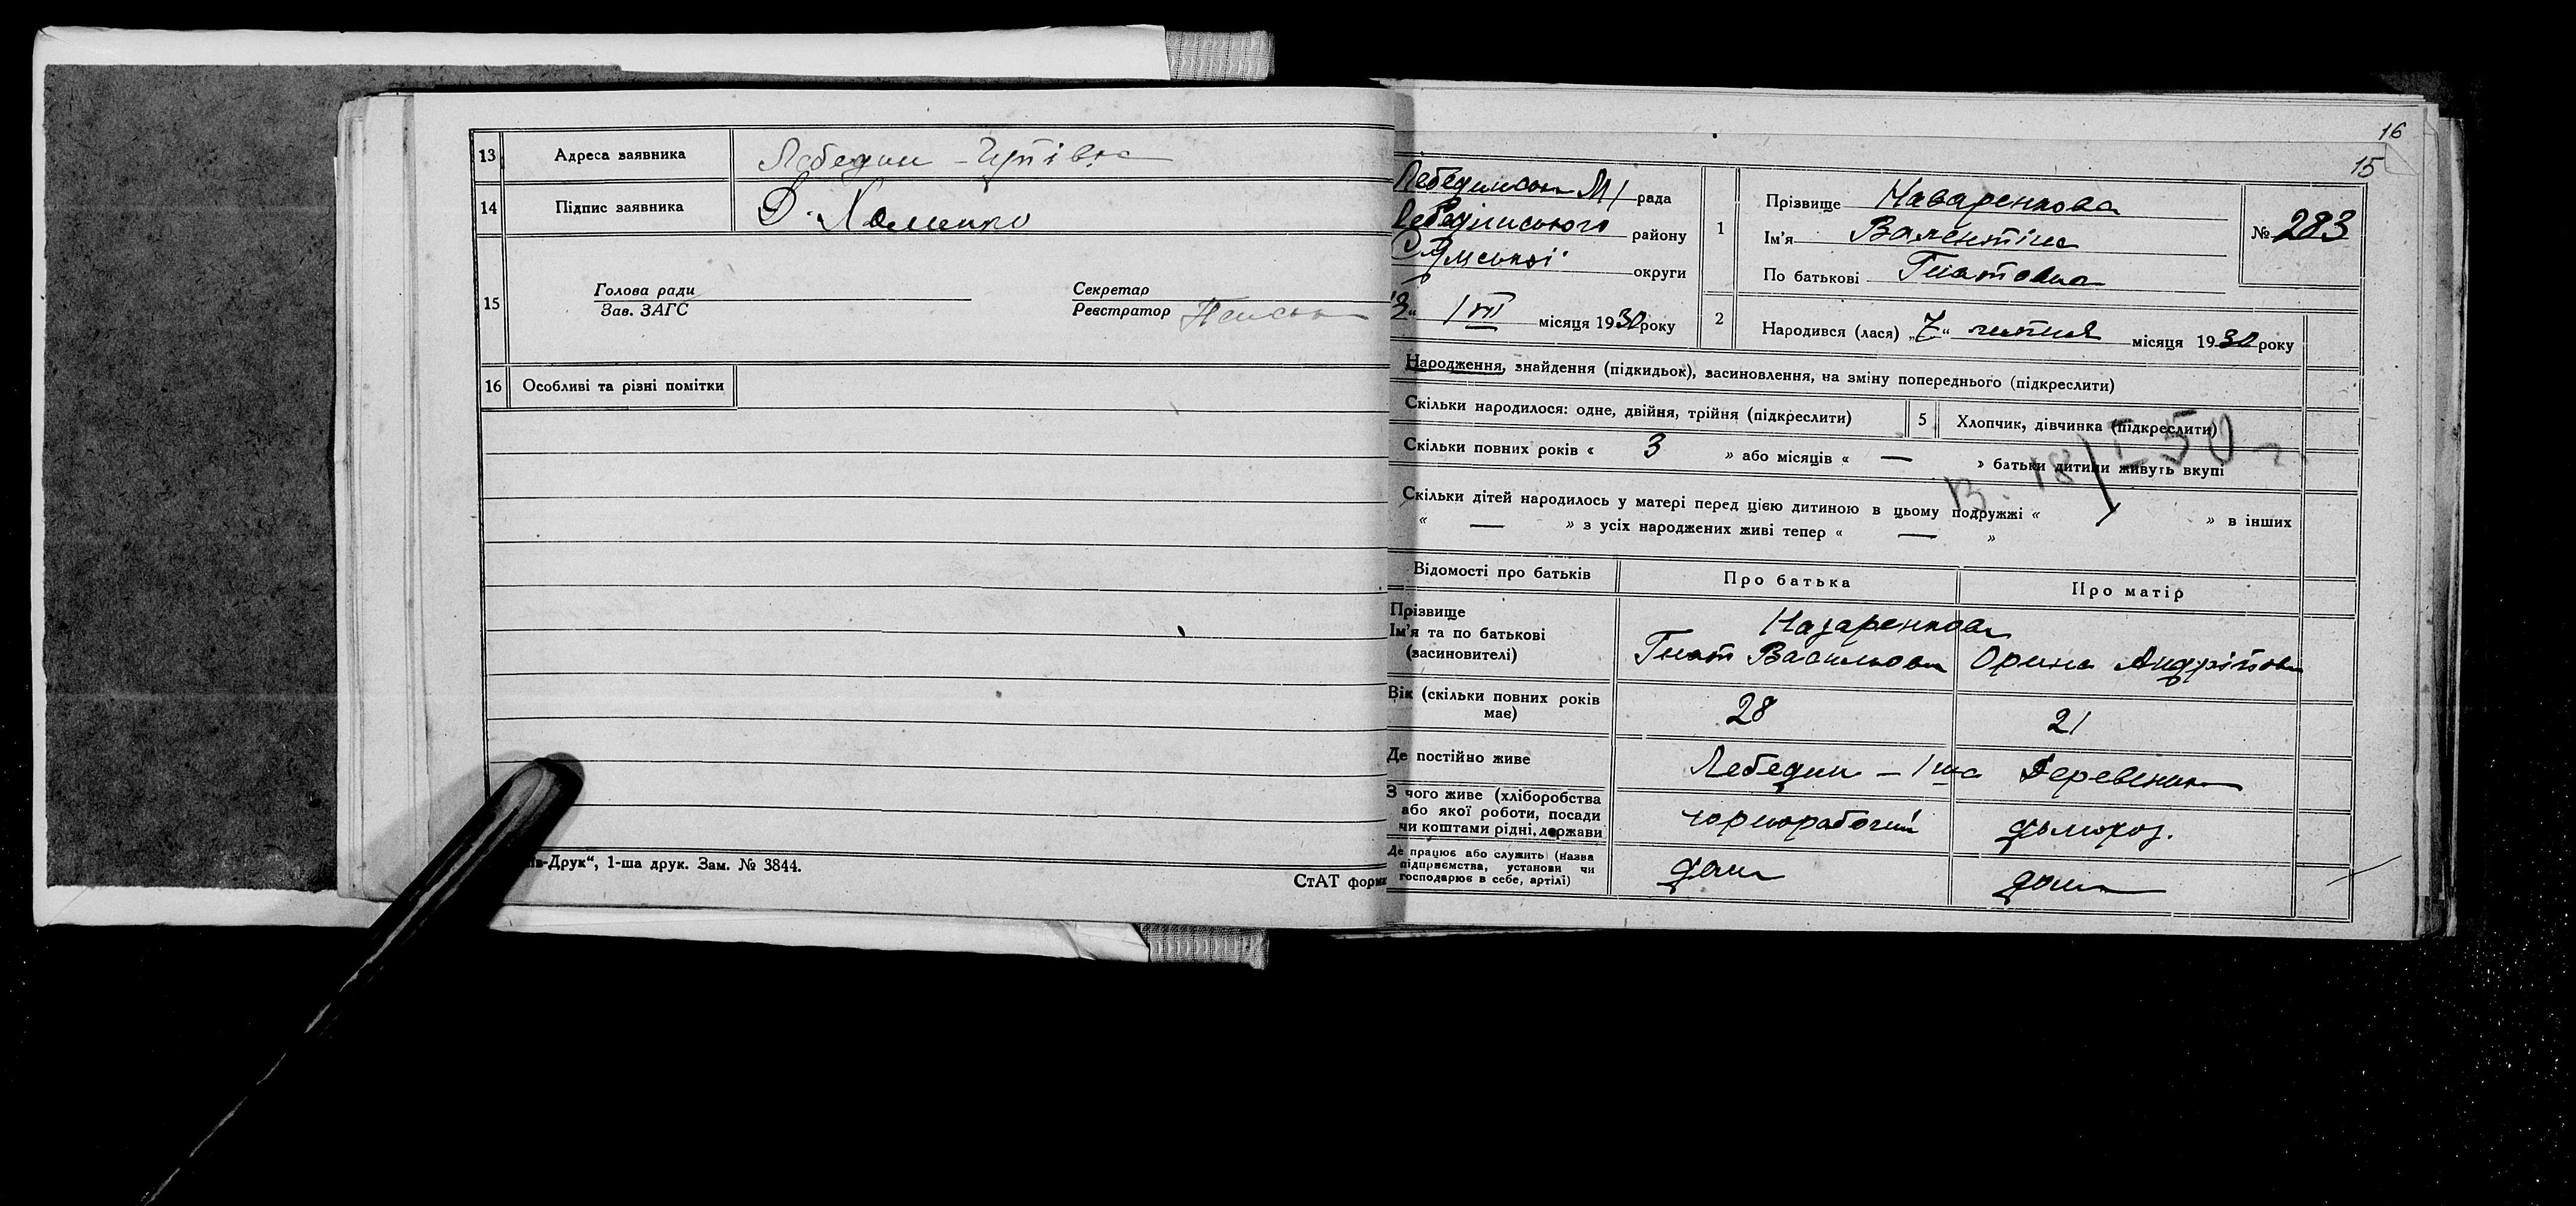 13 Адреса заявника Лебедин –
14 Підпис заявника Хоменко
15 Голова ради
Зав. ЗАГС
Секретар
Реєстратор
16 Особливі та різні помітки
-Друк“, 1-ша друк. Зам. № 3844.
СтАТ форма
16
15
Лебединська М/ рада
Лебединського району
Сумської округи
місяця 1930 року
1 Прізвище Назаренкова
Ім'я Валентіна
По батькові Гнатовна
№ 283
2 Народився (лася) „7“ липня місяця 1930 року
Народження, знайдення (підкидьок), засиновлення, на зміну попереднього (підкреслити)
Скільки народилося: одне, двійня, трійня (підкреслити)
5 Хлопчик, дівчинка (підкреслити)
Скільки повних років « 3 » або місяців « — » батьки дитини живуть вкупі
Скільки дітей народилось у матері перед цією дитиною в цьому подружжі « » в інших
« — » з усіх народжених живі тепер « — »
Відомості про батьків Про батька Про матір
Прізвище Назаренкови
Ім'я та по батькові
(засиновителі) Гнат Васильович Орина Андріївна
Вік (скільки повних років має) 28 21
Де постійно живе Лебедин – 1ша
З чого живе (хліборобства або якої роботи, посади чи коштами рідні, держави чорноробочий домохоз.
Де працює або служить (назва підприємства, установи чи господарює в себе, артілі) дома дома